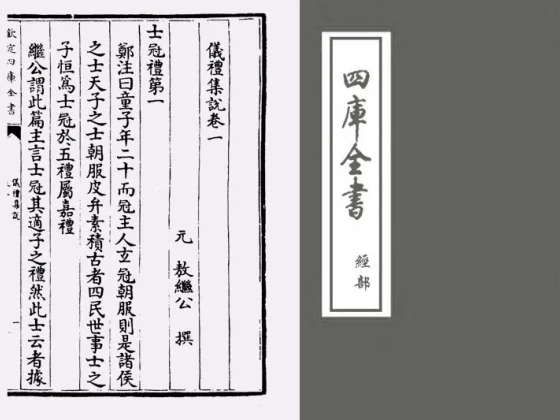 儀禮集說卷一
元 敖繼公 撰
士冠禮第一
鄭注曰童子年二十而冠主人玄冠朝服則是諸侯
之士天子之士朝服皮弁素積古者四民世事士之
子恒爲士冠於五禮屬嘉禮
繼公謂此篇主言士冠其適子之禮然此士云者據
欽定四庫全書
儀禮集說
四庫全書
經部